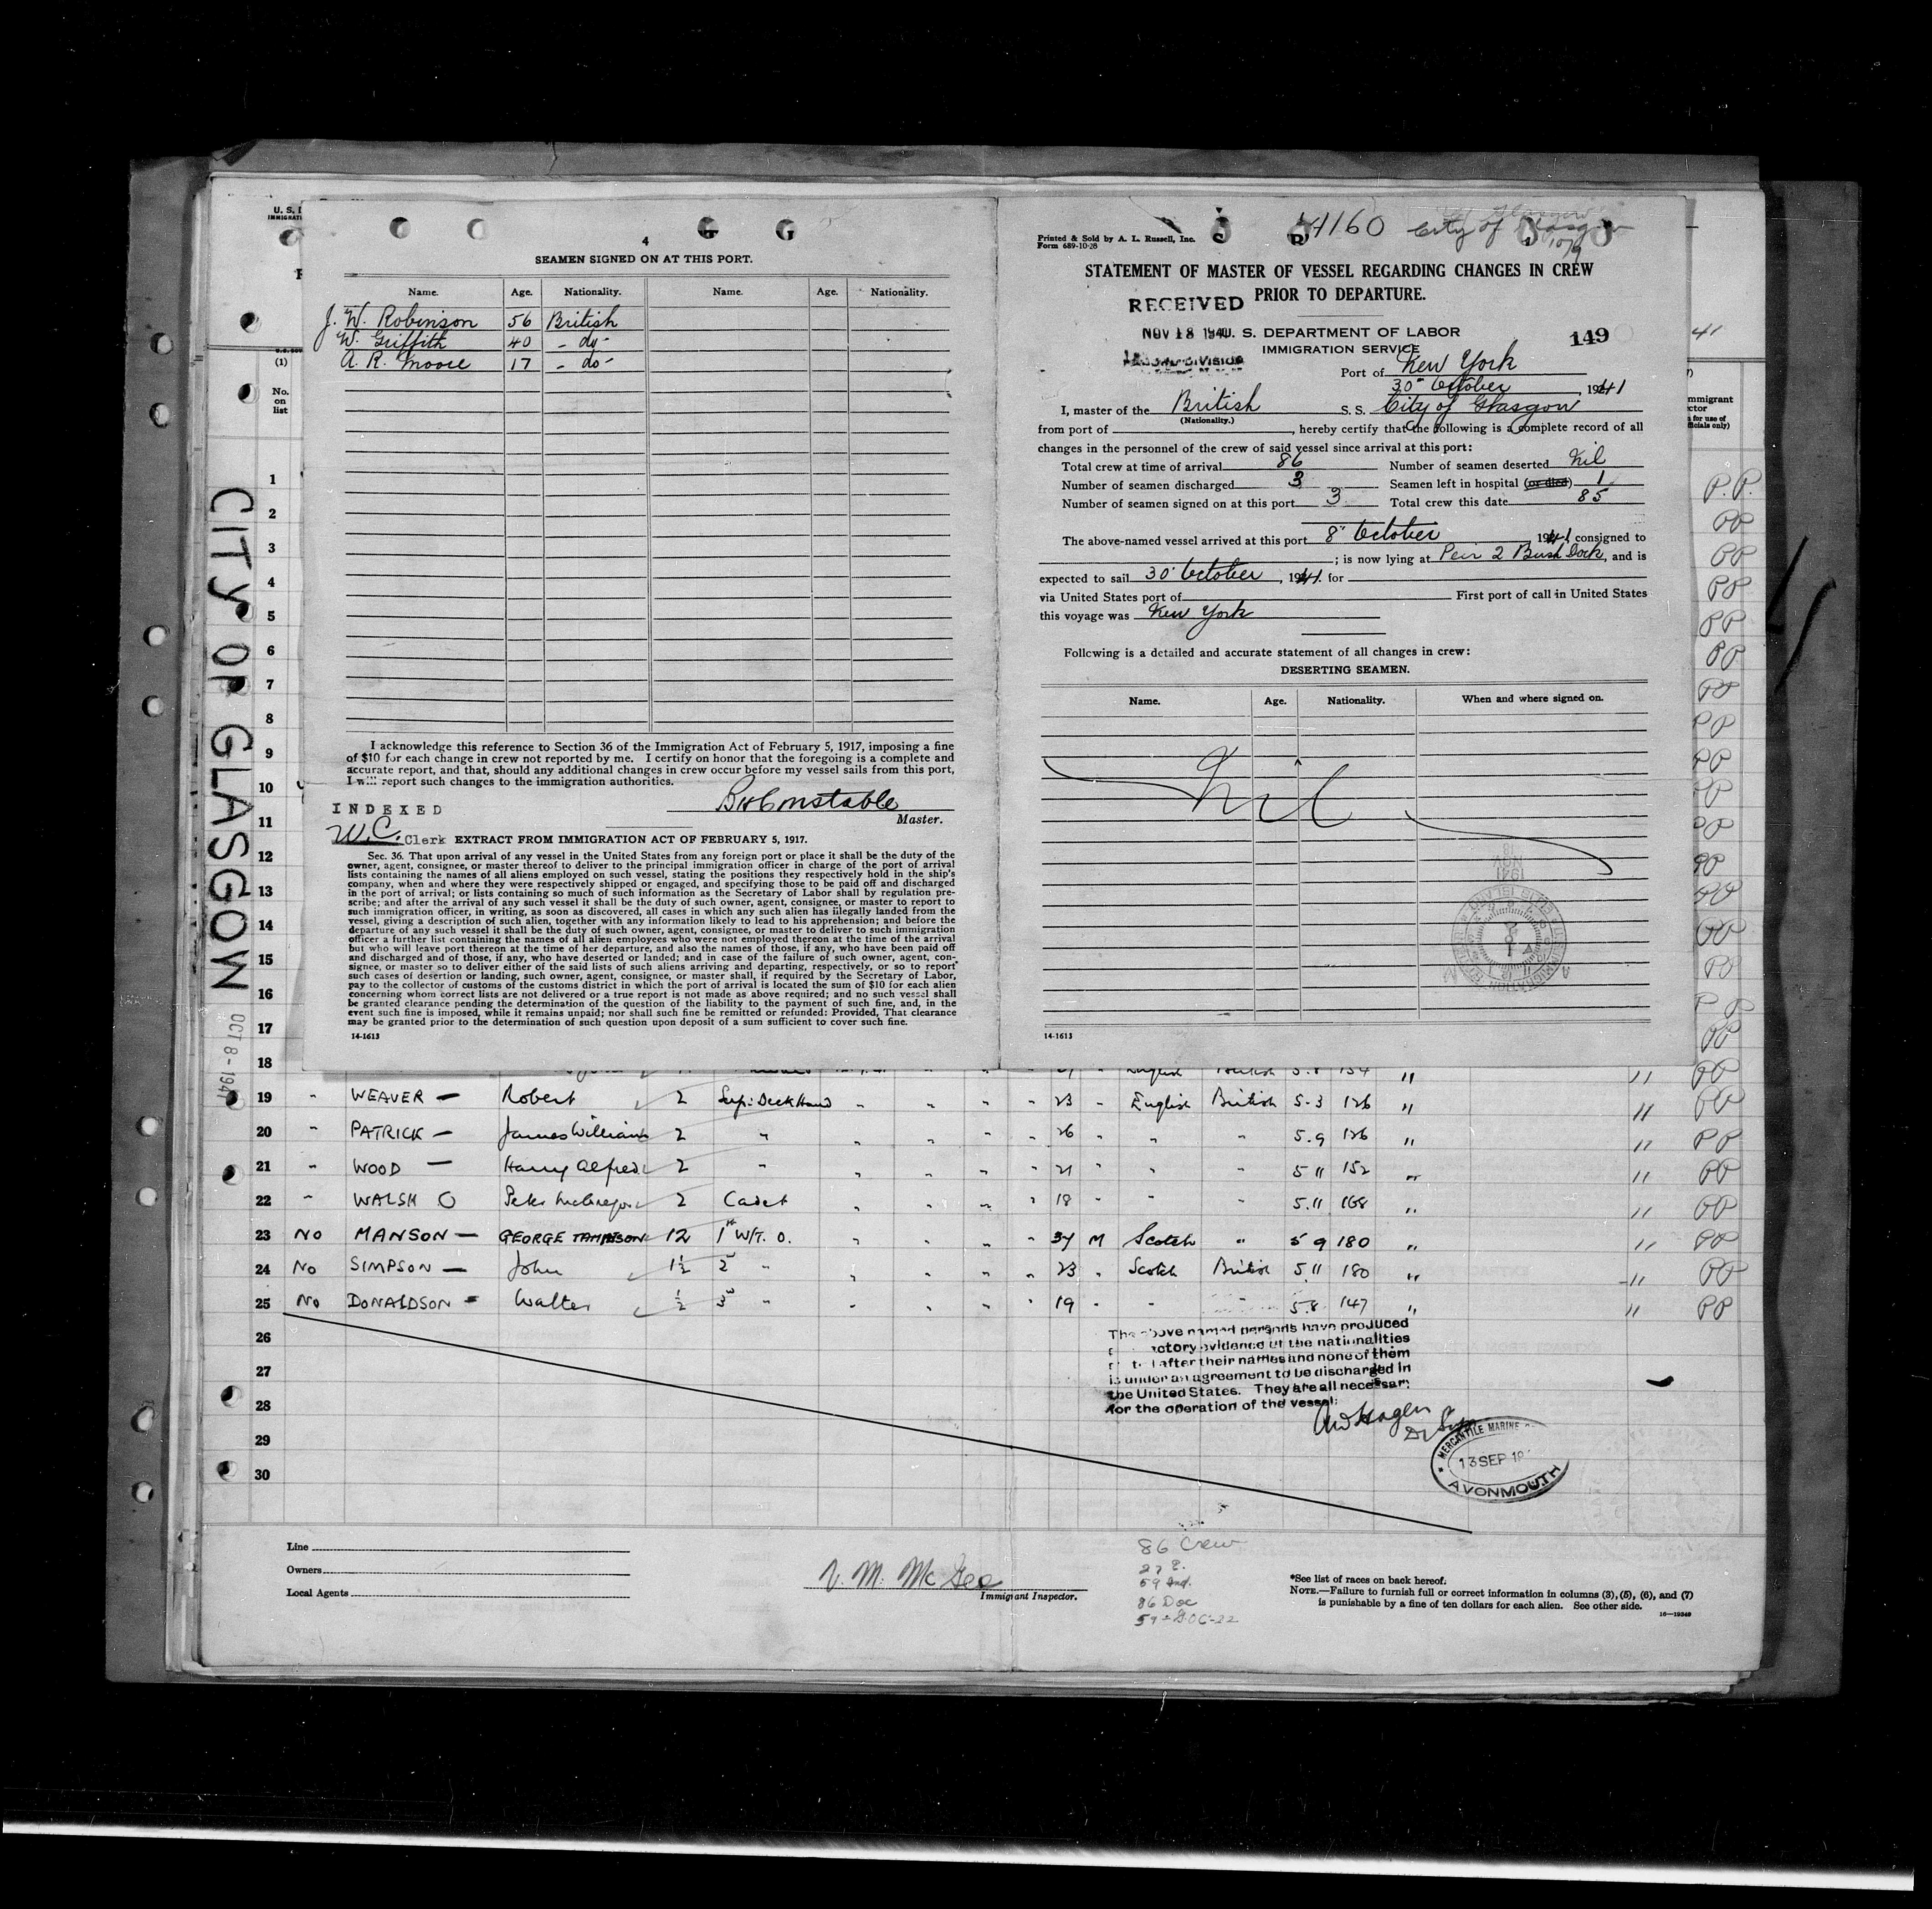 U. S. I
IMMIGRATI
(1)
No.
on
list
CITY OF GLASGOW
OCT 8 - 194
4
SEAMEN SIGNED ON AT THIS PORT.
Name. Age. Nationality. Name. Age. Nationality.
J. W. Robinson 56 British
W. Griffith 40 - do -
A. R. Moore 17 - do -
I acknowledge this reference to Section 36 of the Immigration Act of February 5, 1917, imposing a fine
of $10 for each change in crew not reported by me. I certify on honor that the foregoing is a complete and
accurate report, and that, should any additional changes in crew occur before my vessel sails from this port,
I will report such changes to the immigration authorities.
INDEXED
Constable
Master.
W.C. Clerk EXTRACT FROM IMMIGRATION ACT OF FEBRUARY 5, 1917.
Sec. 36. That upon arrival of any vessel in the United States from any foreign port or place it shall be the duty of the
owner, agent, consignee, or master thereof to deliver to the principal immigration officer in charge of the port of arrival
lists containing the names of all aliens employed on such vessel, stating the positions they respectively hold in the ship's
company, when and where they were respectively shipped or engaged, and specifying those to be paid off and discharged
in the port of arrival; or lists containing so much of such information as the Secretary of Labor shall by regulation pre-
scribe; and after the arrival of any such vessel it shall be the duty of such owner, agent, consignee, or master to report to
such immigration officer, in writing, as soon as discovered, all cases in which any such alien has illegally landed from the
vessel, giving a description of such alien, together with any information likely to lead to his apprehension; and before the
departure of any such vessel it shall be the duty of such owner, agent, consignee, or master to deliver to such immigration
officer a further list containing the names of all alien employees who were not employed thereon at the time of the arrival
but who will leave port thereon at the time of her departure, and also the names of those, if any, who have been paid off
and discharged and of those, if any, who have deserted or landed; and in case of the failure of such owner, agent, con-
signee, or master so to deliver either of the said lists of such aliens arriving and departing, respectively, or so to report
such cases of desertion or landing, such owner, agent, consignee, or master shall, if required by the Secretary of Labor,
pay to the collector of customs of the customs district in which the port of arrival is located the sum of $10 for each alien
concerning whom correct lists are not delivered or a true report is not made as above required; and no such vessel shall
be granted clearance pending the determination of the question of the liability to the payment of such fine, and, in the
event such fine is imposed, while it remains unpaid; nor shall such fine be remitted or refunded: Provided, That clearance
may be granted prior to the determination of such question upon deposit of a sum sufficient to cover such fine.
14-1613
Printed & Sold by A. L. Russell, Inc.
Form 689-10-28
41160 City of Glasgow
10/9
STATEMENT OF MASTER OF VESSEL REGARDING CHANGES IN CREW
PRIOR TO DEPARTURE.
RECEIVED
NOV 18 1941
U. S. DEPARTMENT OF LABOR
IMMIGRATION SERVICE
149
Port of New York
30" October, 1941
I, master of the British S. S. City of Glasgow
(Nationality.)
from port of , hereby certify that the following is a complete record of all
changes in the personnel of the crew of said vessel since arrival at this port:
Total crew at time of arrival 86 Number of seamen deserted Nil
Number of seamen discharged 3 Seamen left in hospital (or died) 1
Number of seamen signed on at this port 3 Total crew this date 85
The above-named vessel arrived at this port 8" October 1941 consigned to
; is now lying at Peir 2 Bush Dock, and is
expected to sail 30" October, 1941 for
via United States port of First port of call in United States
this voyage was New York
Following is a detailed and accurate statement of all changes in crew:
DESERTING SEAMEN.
Name. Age. Nationality. When and where signed on.
Nil
14-1613
41
mmigrant
ctor
for use of
ficials only)
1 P.P.
2 PP
3 PP
4 PP
5 PP
6 PP
7 PP
8 PP
9 PP
10 PP
11 PP
12 PP
13 PP
14 PP
15 PP
16 PP
17 PP
18 English British 5.8 154 " " PP
19 " WEAVER - Robert 2 Sup: Deck Hand " " " " 23 " English British 5-3 126 " " PP
20 " PATRICK - James William 2 " " " " " 26 " " " 5.9 126 " " PP
21 " WOOD - Harry Alfred 2 " " " " " 21 " " " 5 11 152 " " PP
22 " WALSH O Peter McGregor 2 Cadet " " " " 18 " " " 5.11 168 " " PP
23 NO MANSON - GEORGE 12 1st W/T. O. " " " " 37 M Scotch " 5 9 180 " " PP
24 No SIMPSON - John 1½ 2nd " " " " " 23 " Scotch British 5 11 180 " " PP
25 No DONALDSON - Walter ½ 3rd " " " " " 19 " " " 5.8 147 " " PP
26
27
28
29
30
The above named persons have produced
actory evidence of the nationalities
after their names and none of them
is under an agreement to be discharged in
the United States. They are all necessary
for the operation of the vessel.
MERCANTILE MARINE
13 SEP 19
AVONMOUTH
Line
Owners
Local Agents
V. M. McGee
Immigrant Inspector.
86 Crew
27 E.
59 Ind.
86 Doc
*See list of races on back hereof.
NOTE.—Failure to furnish full or correct information in columns (3), (5), (6), and (7)
is punishable by a fine of ten dollars for each alien. See other side.
16—19349